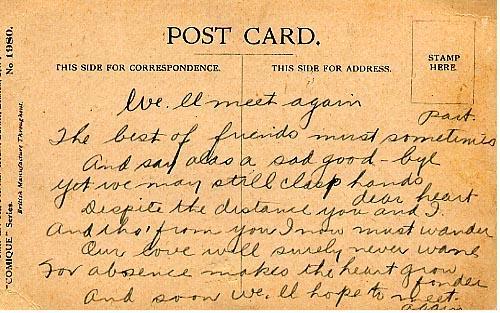 POST CARD.
THIS SIDE FOR CORRESPONDENCE.
THIS SIDE FOR ADDRESS.
STAMP
HERE.
"COMIQUE" Series.
British Manufacture Throughout.
No 1980.
We'll meet again
The best of friends must sometimes part
And say alas a sad good-bye
Yet we may still clasp hands dear heart
Despite the distance you and I
And tho' from you I now must wander
Our love will surely never wane
For absence makes the heart grow fonder
And soon we'll hope to meet again